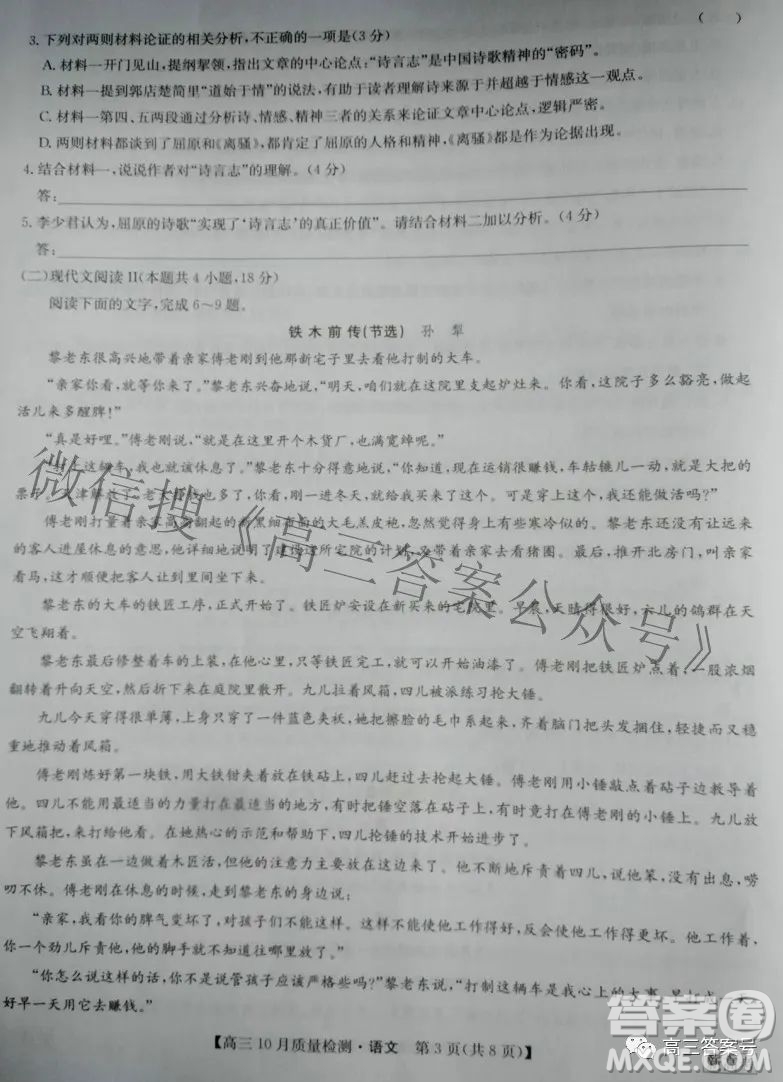 (    )
3. 下列对两则材料论证的相关分析,不正确的一项是(3分)
A. 材料一开门见山,提纲挈领,指出文章的中心论点:“诗言志”是中国诗歌精神的“密码”。
B. 材料一提到郭店楚简里“道始于情”的说法,有助于读者理解诗来源于并超越于情感这一观点。
C. 材料一第四、五两段通过分析诗、情感、精神三者的关系来论证文章中心论点,逻辑严密。
D. 两则材料都谈到了屈原和《离骚》,都肯定了屈原的人格和精神,《离骚》都是作为论据出现。
4. 结合材料一,说说作者对“诗言志”的理解。(4分)
答:
5. 李少君认为,屈原的诗歌“实现了‘诗言志’的真正价值”。请结合材料二加以分析。(4分)
答:
(二)现代文阅读II(本题共4小题,18分)
阅读下面的文字,完成6~9题。
铁木前传(节选) 孙 犁
黎老东很高兴地带着亲家傅老刚到他那新宅子里去看他打制的大车。
“亲家你看,就等你来了。”黎老东兴奋地说,“明天,咱们就在这院里支起炉灶来。你看,这院子多么豁亮,做起
活儿来多醒脾!”
“真是好哩。”傅老刚说,“就是开个木货厂,也满宽绰呢。”
“打上这辆车,我也就该休息了。”黎老东十分得意地说,“你知道,现在运销很赚钱,车轱辘儿一动,就是大把的
票子。天津解放了,老大寄钱也多了,刚一进冬天,就给我买来了这个。可是穿上这个,我还能做活吗?”
傅老刚打量着亲家高高翻起的新黑细布面的大毛羔皮袍,忽然觉得身上有些寒冷似的。黎老东还没有让远来
的客人进屋休息的意思,他详细地说明了建设这所宅院的计划,又带着亲家去看猪圈。最后,推开北房门,叫亲家
看马,这才顺便把客人让到屋里坐下来。
黎老东的大车的铁匠工序,正式开始了。铁匠炉安设在新买来的宅院里。早晨,天晴得很好,六儿的鸽群在天
空飞翔着。
黎老东最后修整着车的上装,在他心里,只等铁匠完工,就可以开始油漆了。傅老刚把铁匠炉点着,一股浓烟
翻转着升向天空,然后折下来在庭院里散开。九儿拉着风箱,四儿被派练习抡大锤。
九儿今天穿得很单薄,上身只穿了一件蓝色夹袄,她把擦脸的毛巾系起来,齐着脑门把头发捆住,轻捷而又稳
重地推动着风箱。
傅老刚炼好第一块铁,用大铁钳夹着放在铁砧上,四儿赶过去抡起大锤。傅老刚用小锤敲点着砧子边教导着
他。四儿不能用最适当的力量打在最适当的地方,有时把锤空落在砧子上,有时竟打在傅老刚的小锤上。九儿放
下风箱把,来打给他看。在她热心的示范和帮助下,四儿抡锤的技术开始进步了。
黎老东虽在一边做着木匠活,但他的注意力主要放在这边来了。他不断地斥责着四儿,说他笨,没有出息,唠
叨不休。傅老刚在休息的时候,走到黎老东的身边说:
“亲家,我看你的脾气变坏了,对孩子们不能这样。这样不能使他工作得好,反会使他工作得更坏。他工作着,
你一个劲儿斥责他,他的脚手就不知道往哪里放好了。”
“你怎么说这样的话,你不是说管孩子应该严格些吗?”黎老东说,“打制这辆车是我心上的大事,早点完工,
好早一天用它去赚钱。”
【高三10月质量检测·语文 第3页(共8页)】
微信搜《高三答案公众号》
答案圈
MXQE.COM
高三答案号